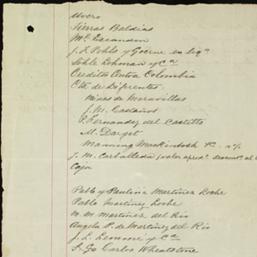 Tierras Baldias
Mc. Escandon
J. L. Pohls y Goerne en liqn.
Sohle Lohman y Ca
Creditos Contra Colombia
Cta. de Diferentes
Minas de Maravillas
J. M. Castaños
P. Fernandez del Castillo
M. Dargot
Manning Mackintosh
J. M. Carballeda
Caja
Pablo y Paulina Martinez
Pablo Martinez
M. M. Martinez del Rio
Angela P. de Martinez del Rio
J. L. Lemoine y Ca
S. Go Carlos Wheatstone